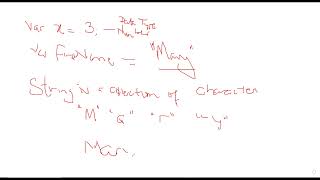 Var x = 3. — Data Type Number
Var FirstName = "Mary"
String is collection of character
"M" "a" "r" "y"
Mary